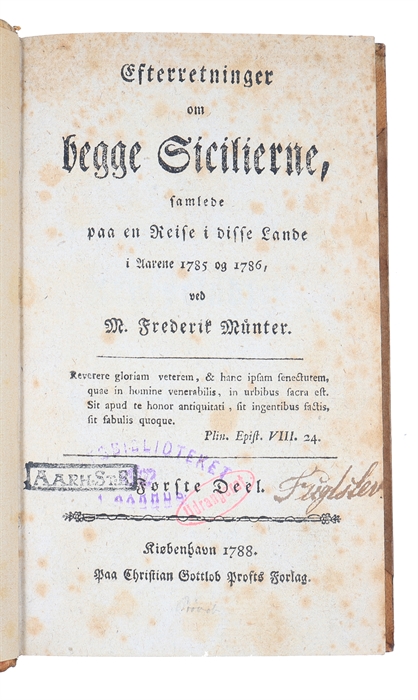 Efterretninger
om
begge Sicilierne,
samlede
paa en Reise i disse Lande
i Aarene 1785 og 1786,
ved
M. Frederik Münter.
Reverere gloriam veterem, & hanc ipsam senecturem,
quae in homine venerabilis, in urbibus sacra est.
Sit apud te honor antiquitati, sit ingentibus factis,
sit fabulis quoque.
Plin. Epist. VIII. 24.
BIBLIOTEKET
AARH. ST. B.
Første Deel.
Kiøbenhavn 1788.
Paa Christian Gottlob Profts Forlag.